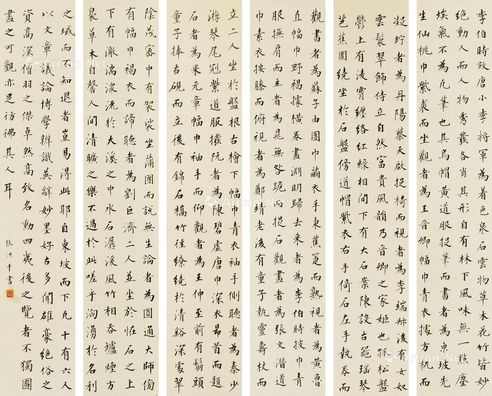 李伯時效唐小李將軍為著色泉石雲物草木花竹皆妙
絕動人而人物秀發各肖其形自有林下風味無一點塵
埃氣不為凡筆也其烏帽黃道服捉筆而書者為東坡先
生仙桃巾紫裘而坐觀者為王晉卿幅巾青衣據方机而
凝竚者為丹陽蔡天啟捉椅而視者為李端叔後有女奴
雲鬟翠飾侍立自然富貴風韻乃晉卿之家姬也孤松盤
鬱上有凌霄纏絡紅綠相間下有大石案陳設古器瑤琴
芭蕉圍繞坐於石盤傍道帽紫衣右手倚石左手執卷而
觀書者為蘇子由團巾繭衣手秉蕉箑而熟視者為黃魯
直幅巾野褐據橫卷畫淵明歸去來者為李伯時披巾青
服撫肩而立者為晁无咎跪而捉石觀畫者為張文潛道
巾素衣按膝而俯視者為鄭靖老後有童子執靈壽杖而
立二人坐於盤根古檜下幅巾青衣袖手側聽者為秦少
游琴尾冠紫道服摘阮者為陳碧虛唐巾深衣昂首而題
石者為米元章幅巾袖手而仰觀者為王仲至前有鬅頭頑
童子捧古硯而立後有錦石橋竹徑繚繞於清谿深處翠
陰茂密中有袈裟坐蒲團而說無生論者為圓通大師傍
有幅巾褐衣而諦聽者為劉巨濟二人並坐於怪石之上
下有激湍潨流於大溪之中水石潺湲風竹相吞爐煙方
裊草木自馨人間清曠之樂不過於此嗟乎洶湧於名利
之域而不知退者豈易得此耶自東坡而下凡十有六人
以文章議論博學辨識英辭妙墨好古多聞雄豪絕俗之
資高深僧羽之傑卓然高致名動四夷後之覽者不獨圖
畫之可觀亦足彷彿其人耳